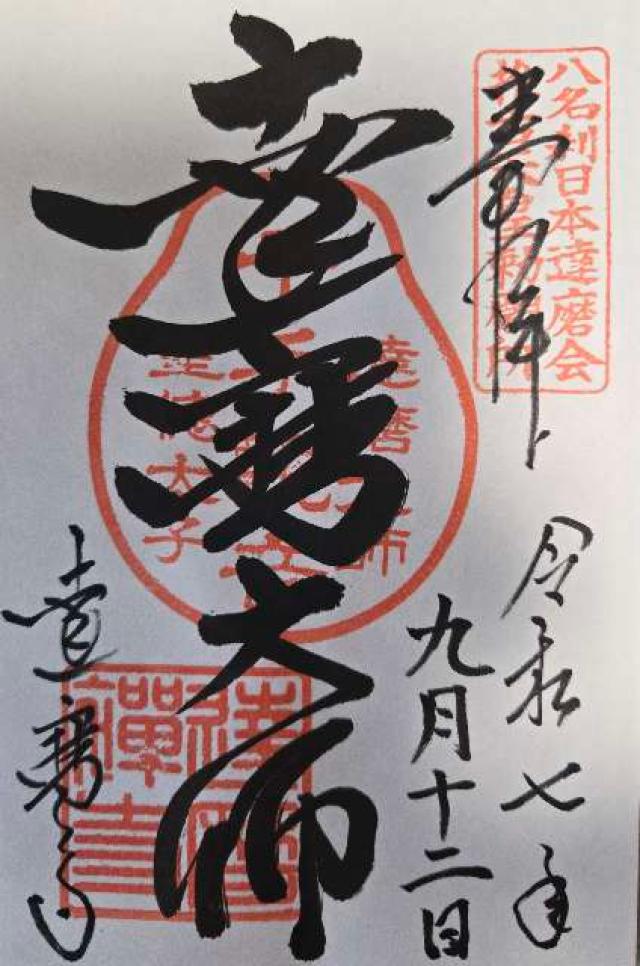 奉拝
八名刹日本達磨会
令和七年
九月十二日
達磨大師
達磨大師
千手観音
聖徳太子
達磨寺
達磨禅寺